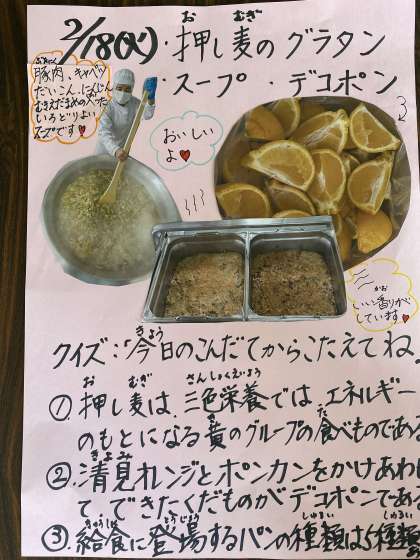 2/18(火)・押し麦のグラタン
・スープ ・デコポン
豚肉、キャベツ
だいこん、にんじん
むきえだまめの入った
いろどりよい
スープです♥
おいしい
よ♥
いい香りが
しています♥
クイズ:「今日のこんだてからこたえてね。
①押し麦は、三色栄養では、エネルギー
のもとになる黄のグループの食べものである
②清見オレンジとポンカンをかけあわ
て、できたくだものがデコポンであ
③給食に登場するパンの種類は、種類